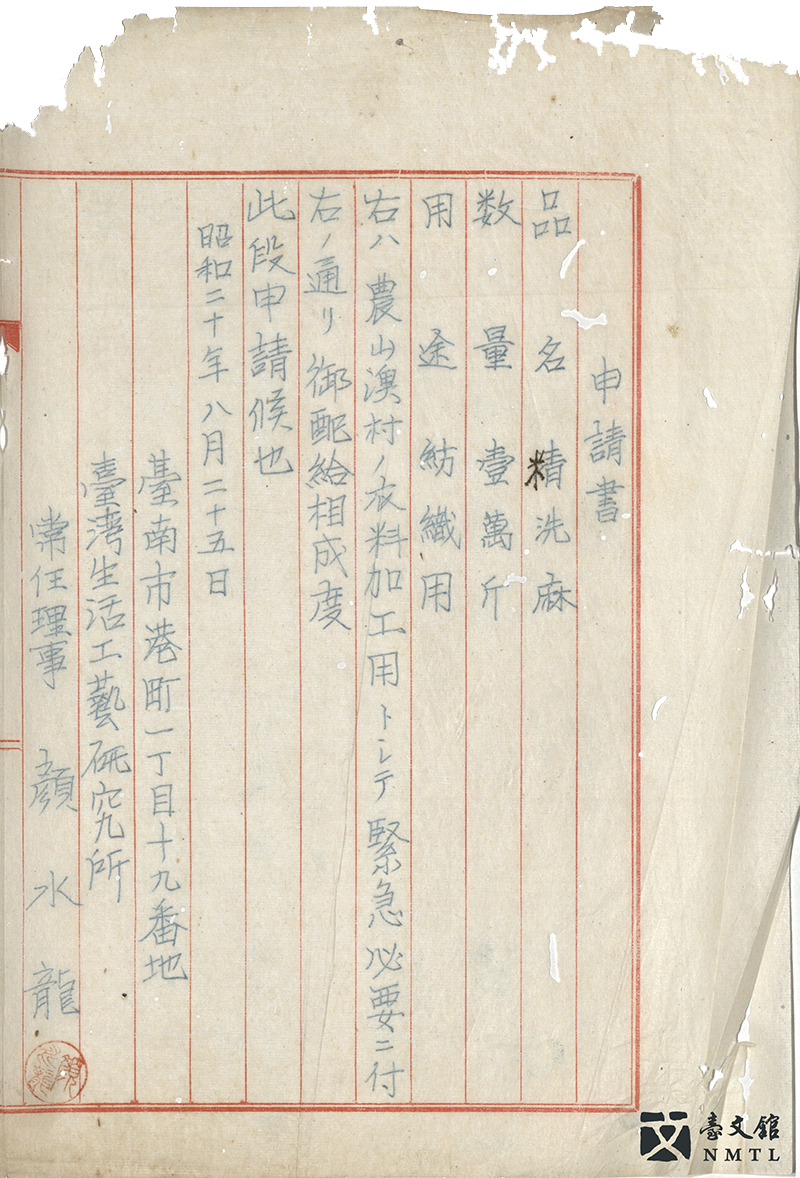 申請書
品名 精洗麻
数量 壹萬斤
用途 紡織用
右ハ農山漁村ノ衣料加工用トシテ緊急必要ニ付
右ノ通リ御配給相成度
此段申請候也
昭和二十年八月二十五日
臺南市港町一丁目十九番地
臺湾生活工藝研究所
常任理事 顔水龍
臺文館
NMTL